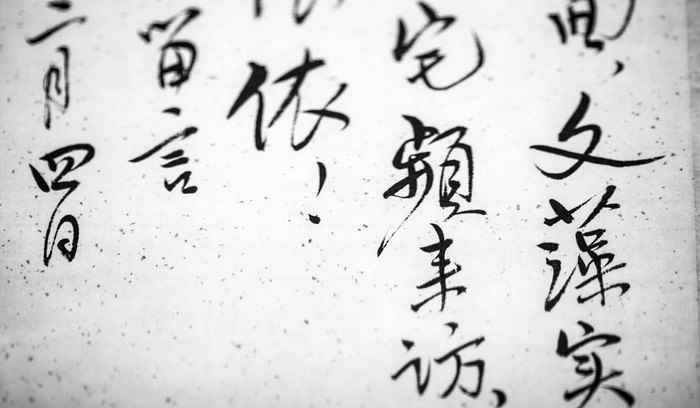 文藻实
宅频来访、
依！
留言
二月四日